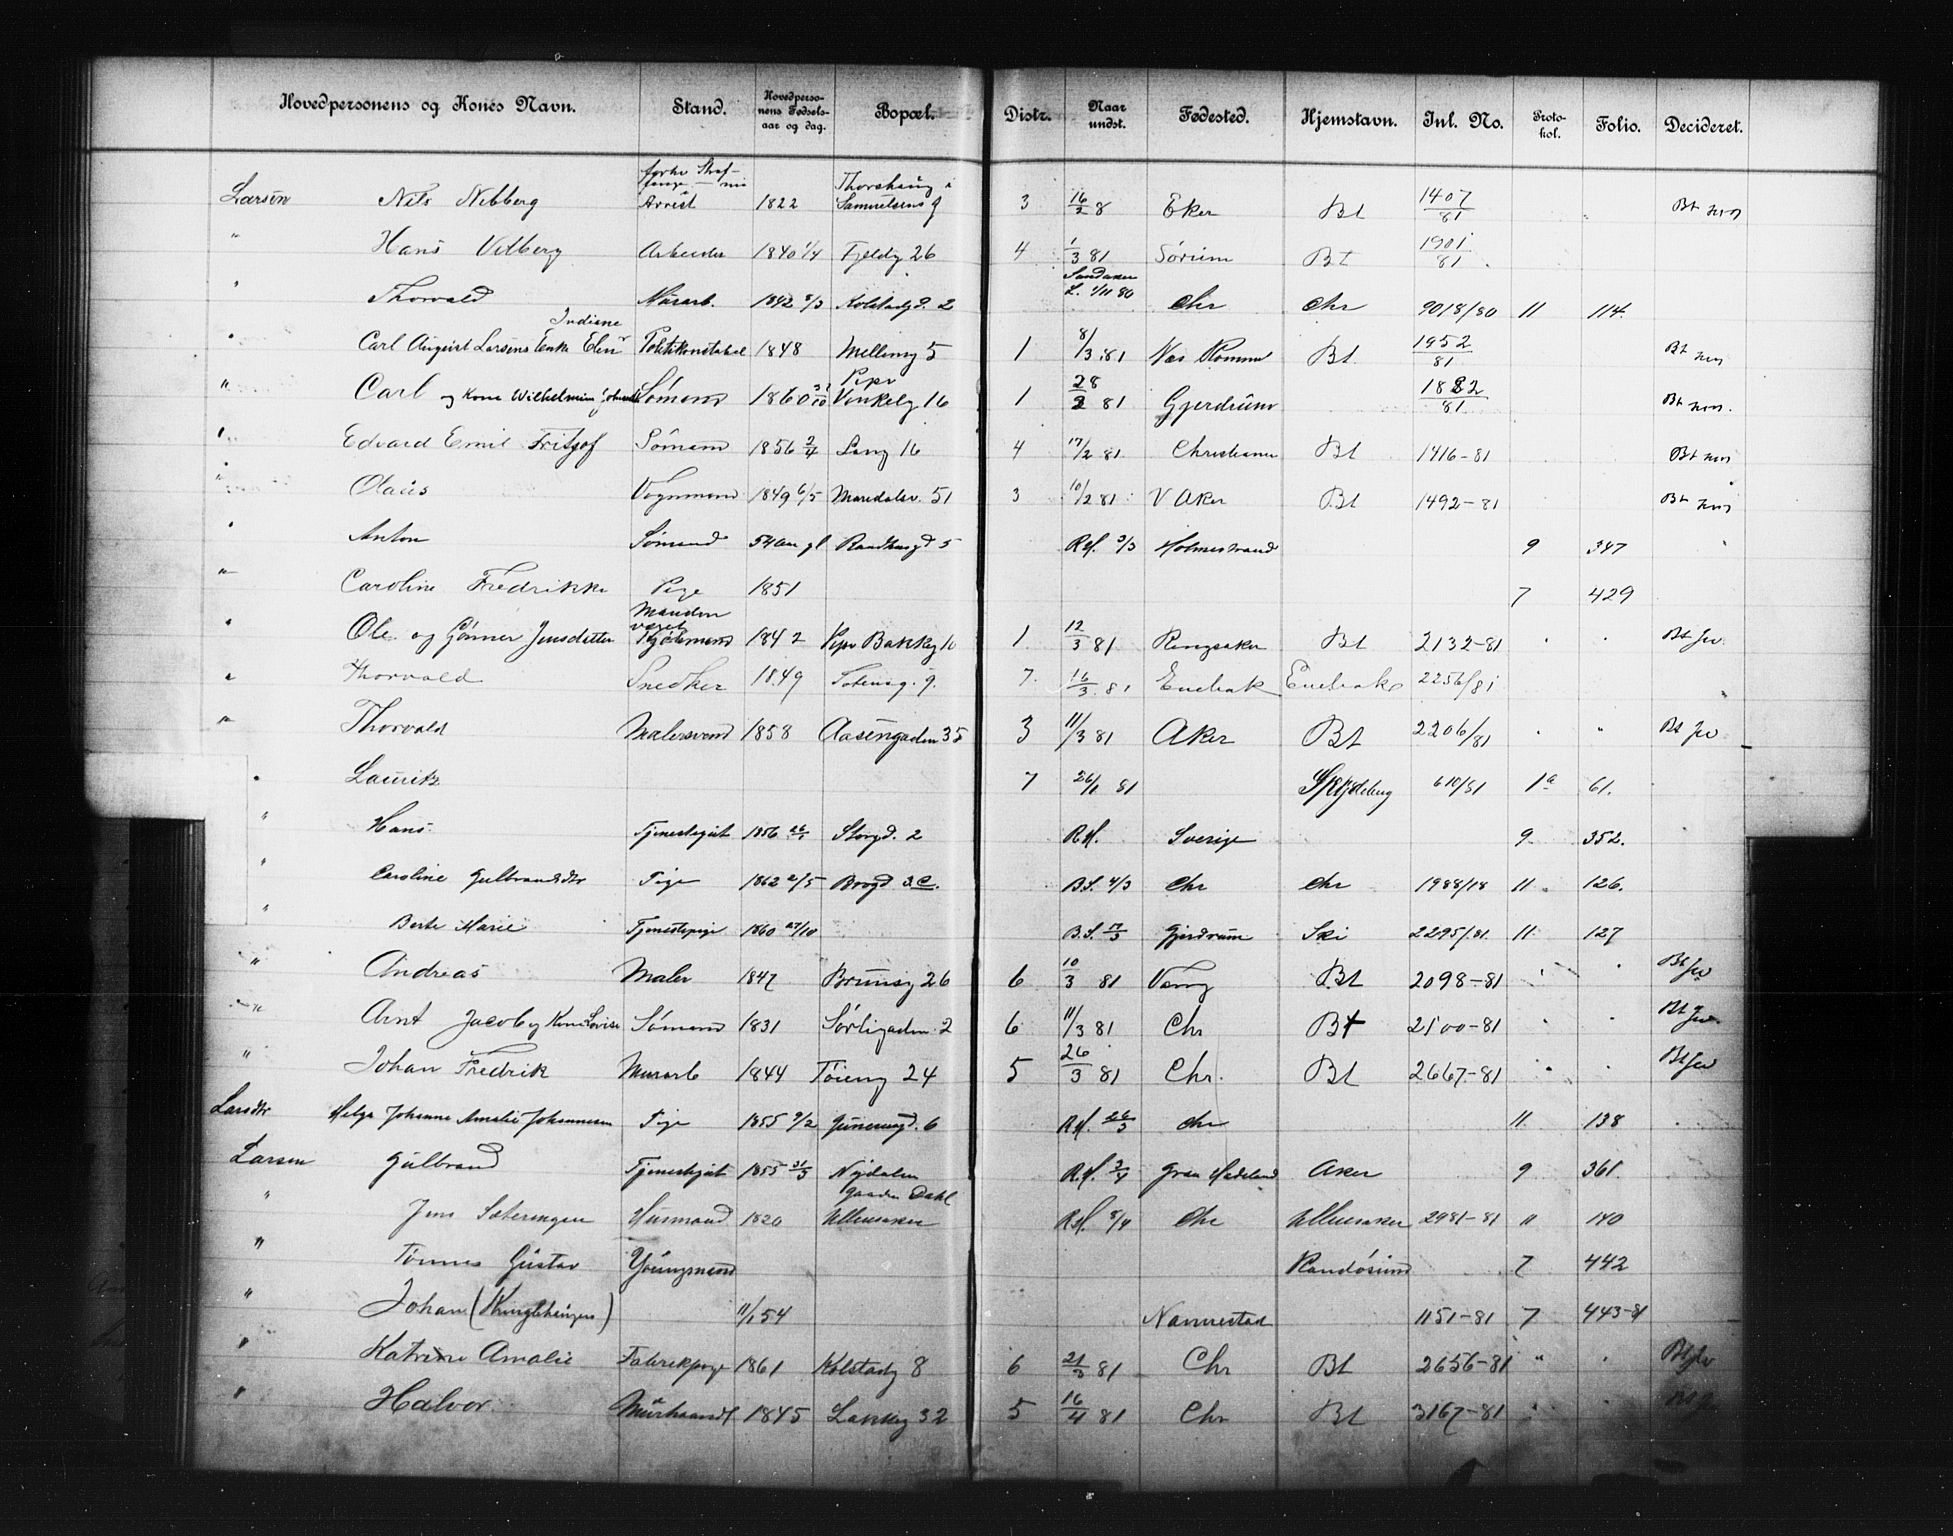 Hovedpersonens og Konès Navn. Stand. Hovedpersonens Fødselsaar og dag. Bopæl. Distr. Naar undst. Fødested. Hjemstavn. Inl. No. Protokol. Folio. Decideret.
Larsen Nils Nebberg Arrest 1822 Samuelsens g 3 16/2 8 Eker Bt 1407/81 Bt
" Hans Vilberg Arbeider 1840 1/4 Fjeldg 26 4 1/3 81 Sørum Bt 1901/81
" Thorvald Murarb. 1842 Kolstadgd. 2 Sandaker L. 1/11 80 Chr Chr 9018/80 11 114.
" Carl August Larsens Enke Elen Indiane Politikonstabel 1848 Mellemg 5 1 8/3 81 Næs Rommer Bt 1952/81 Bt
" Carl og Kone Wilhelmine Sømand 1860 Pipr Vinkelg 16 1 28/2 81 Gjerdrum 1882/81 Bt
" Edvard Emil Fritjof Sømand 1856 2/4 Lang 16 4 17/2 81 Christiania Bt 1416-81 Bt
" Olaus Vognmand 1849 6/5 Maridalsv. 51 3 10/2 81 V Aker Bt 1492-81 Bt
" Anton Sømand 54 Aar gl Raadhusgd 5 RH. 3/3 Holmestrand 9 347
" Caroline Fredrikke Pige 1851 7 429
" Ole og Gunner Jensdatter Manden været 1842 Pipr Bakkeg 10 1 12/3 81 Ringsaker Bt 2132-81 " " Bt
" Thorvald Snedker 1849 Totensg. 9. 7. 16/3 81 Enebak Enebak 2256/81
" Thorvald Malersvend 1858 Aasengaden 35 3 11/3 81 Aker Bt 2206/81 " " Bt
" Lauritz 7 26/1 81 610/81 1a 61.
" Hans. Tjenestegut 1856 Storgd. 2 RH. Sverige 9 352.
" Caroline Gulbrandsdtr Pige 1862 2/5 Brogd 3 C. B.S. 4/3 Chr Chr 1988/18 11 126.
" Berte Marie Tjenestepige 1860 27/10 B.S. 17/3 Gjerdrum Ski 2295/81 11 127
" Andreas Maler 1847 Brunsg 26 6 10/3 81 Vang Bt 2098-81 " " Bt
" Arnt Jacob og Kone Lovise Sømand 1831 Sørligaden 2 6 11/3 81 Chr Bt 2100-81 " " Bt
" Johan Fredrik Murarb 1844 Tøieng 24 5 26/3 81 Chr. Bt 2667-81 " " Bt
Larsdtr Helga Johanne Amalie Johannesen Pige 1855 9/2 Grønnegd. 6 RH. 26/3 Chr 11 138
Larsen Gulbrand Tjenestegut 1855 31/3 Nydalen RH. 2/4 Gran Hadeland Aker 9 361
" Jens Sæteringen Husmand 1820 Gaarden Dahl Ullensaker RH. 8/4 Chr Ullensaker 2981-81 11 140
" Tønnes Gustav Youngsmand Randøsund 7 442
" Johan (Kringlehaugen) 11/1 54 Nannestad 1151-81 7 443-81
" Katrine Amalie Fabrikpige 1861 Kolstadg 8 6 21/3 81 Chr Bt 2656-81 " " Bt
" Halvor Murhaandl 1845 Lakkeg 32 5 16/4 81 Chr Bt 3167-81 " "